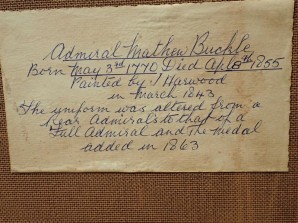 Admiral Mathew Buckle
Born May 3rd 1770 Died Apl 8th 1855
Painted by J Harwood
in March 1843
The uniform was altered from a
Rear Admirals to that of a
Full Admiral and The Medal
added in 1863